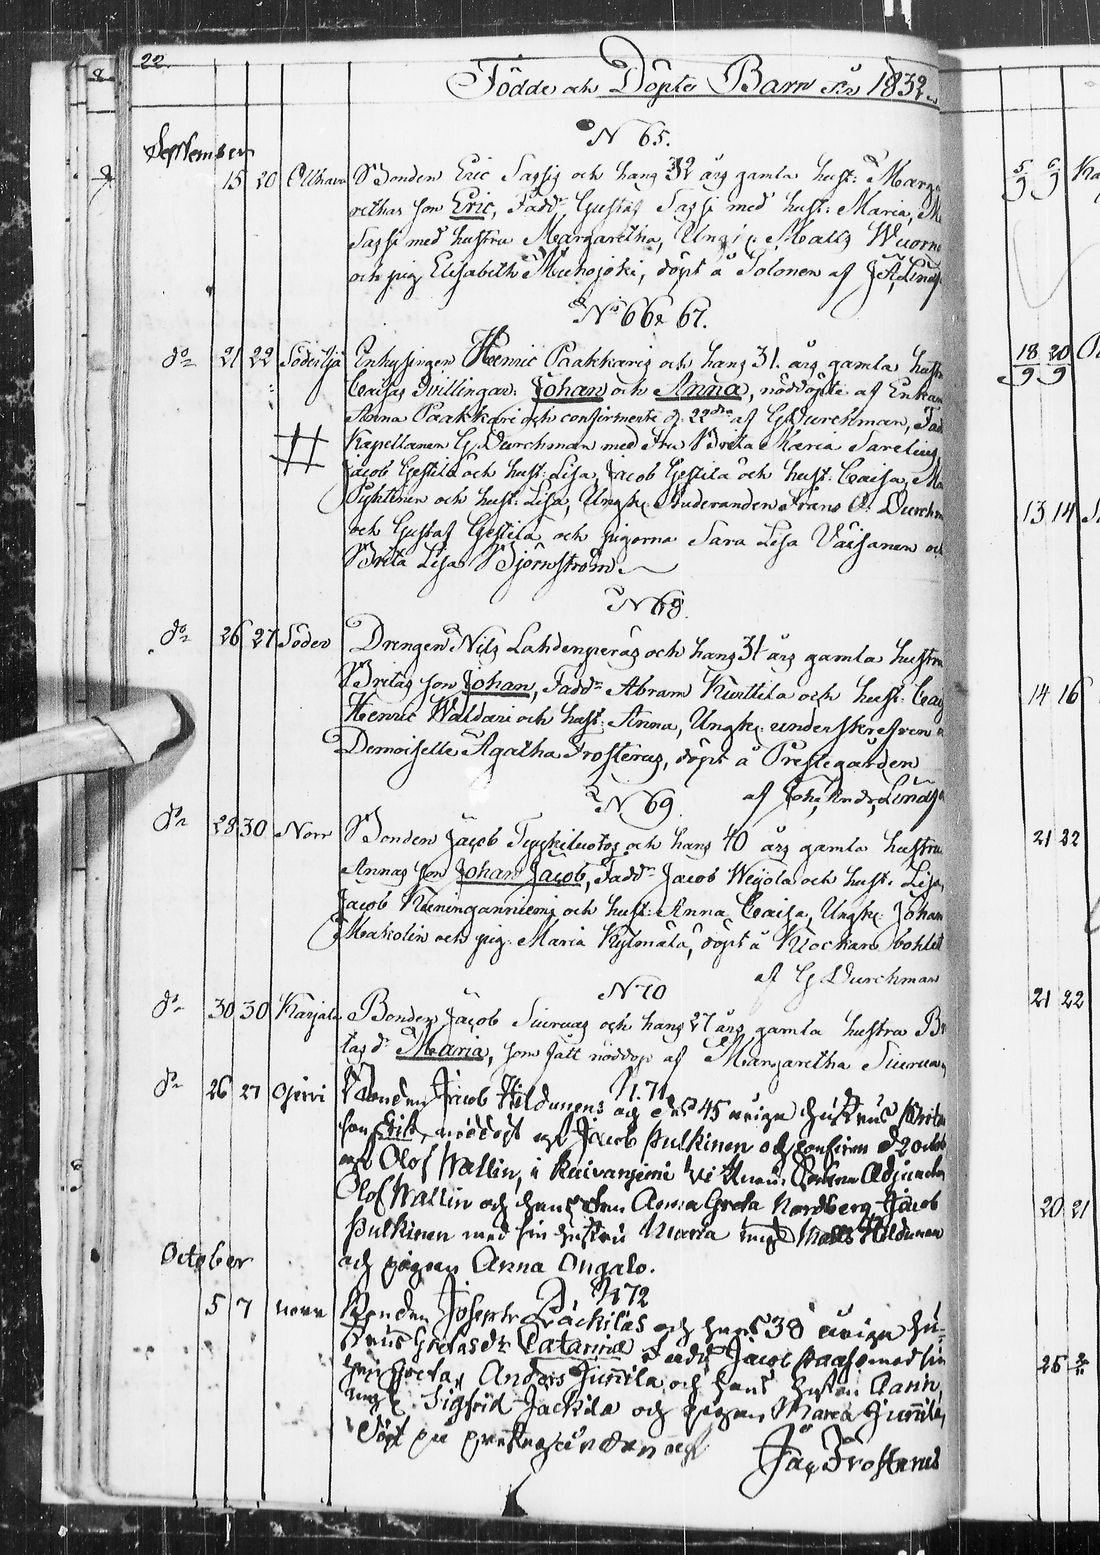 22.
Födde och Döpte Barn År 1832
September
N 65.
15 20 Bonden Eric Sassis och hans 32 års gamla hust: Marga
rethas son Eric, Fadd Gustaf Sassi med hust: Maria, M
Sassi med hustru Margaretha, Ungk: Matts
och pig Elisabeth döpt å Tolonen af
No 66 & 67.
do 21 22 Enhysingen Henric Paakkaris och hans 31 års gamla hustr
Caisas Tvillingar Johan och Anna, nöddöpte af Enkan
Anna Paakkari och confirmerte d. 22dre af G. Durchman, Fad
Kapellanen G. Durchman med Fru Brita Maria
Jacob Gestilä och hust: Lisa, Jacob Gestilä och hust: Caisa, Ma
och hust: Lisa, Ungk: Studeranden Frans O. Durchm
och Gustaf Gestilä och pigorna Sara Lisa Väisänen oc
Brita Lisa Björnström
N 68.
do 26 27 Söder Drengen Nils Lahdenperäs och hans 31 års gamla hustru
Britas son Johan, Fadd Abram Kurttila och hust: Cai
Henric Waldari och hust: Anna, Ungk: underskrefven
Demoiselle Agatha Frosterus, döpt å Prestegården
af Joh: Andr:
N 69
do 28 30 Norr Bonden Jacob och hans 40 års gamla hustru
Annas son Johan Jacob, Fadd Jacob Weijola och hust: Lisa,
Jacob Kuninganniemi och hust: Anna Caisa, Ungk: Johan
Makolin och pig: Maria Kylmälä, döpt å Klockare bohlet
af G Durchman
N 70
do 30 30 Karjal Bonden Jacob Siuruas och hans 27 års gamla hustru Br
tas dr Maria, som fått nöddop af Margaretha Siurua,
N. 71
do 26 27 Ojervi Bonden Jacob Hildunens och des 45 åriga hustrus Brita
son Erik, nöddöpt af Jacob Pulkinen och confirm d 2 octob
af Olof Wallin, i Adjuncten
Olof Wallin och hans Fru Anna Greta Nordberg, Jacob
Pulkinen med sin hustru Maria ungk Matts Hildunen
och pigan Anna Ongalo.
October
N 72
5 7 norr Bonden Joseph Jäckiläs och hans 38 åriga hu-
strus Gretas dr Catarina Fadd Jacob Paaso med sin
hust: Greta, Anders Junnila och hans hustru Carin,
ungk Sigfrid Jackila och pigan Maria Junnila,
Döpt på prestegården af
Jac Frosterus
5/9 6/9
18/9 20/9
13 14
14 16
21 22
21 22
20 21
25